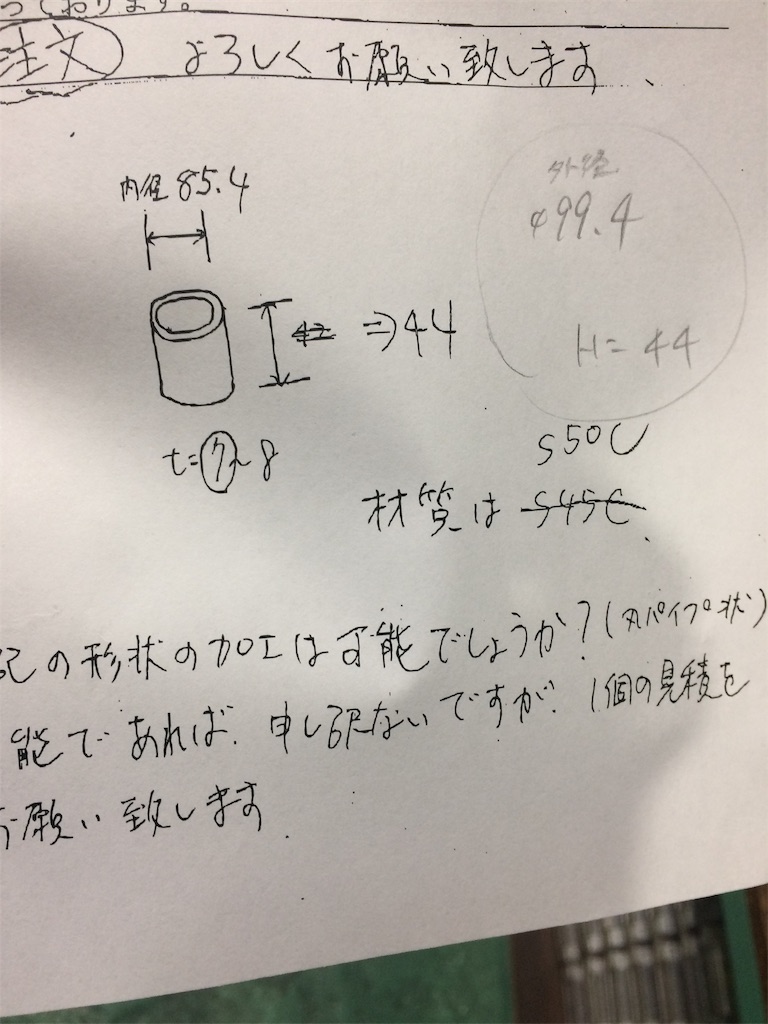 っております。
注文 よろしくお願い致します、
内径 85.4
外径
φ99.4
42 ⇒ 44
H= 44
t=7~8
S50C
材質は S45C.
記の形状の加工は可能でしょうか?(丸パイプ状)
能であれば、申し訳ないですが、1個の見積を
お願い致します.